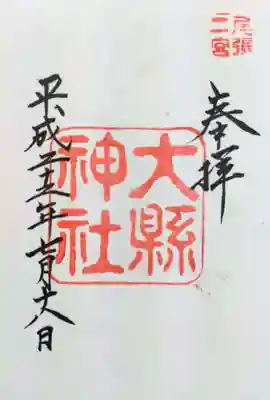 尾張
二宮
奉拝
大縣
神社
平成二十三年七月十八日